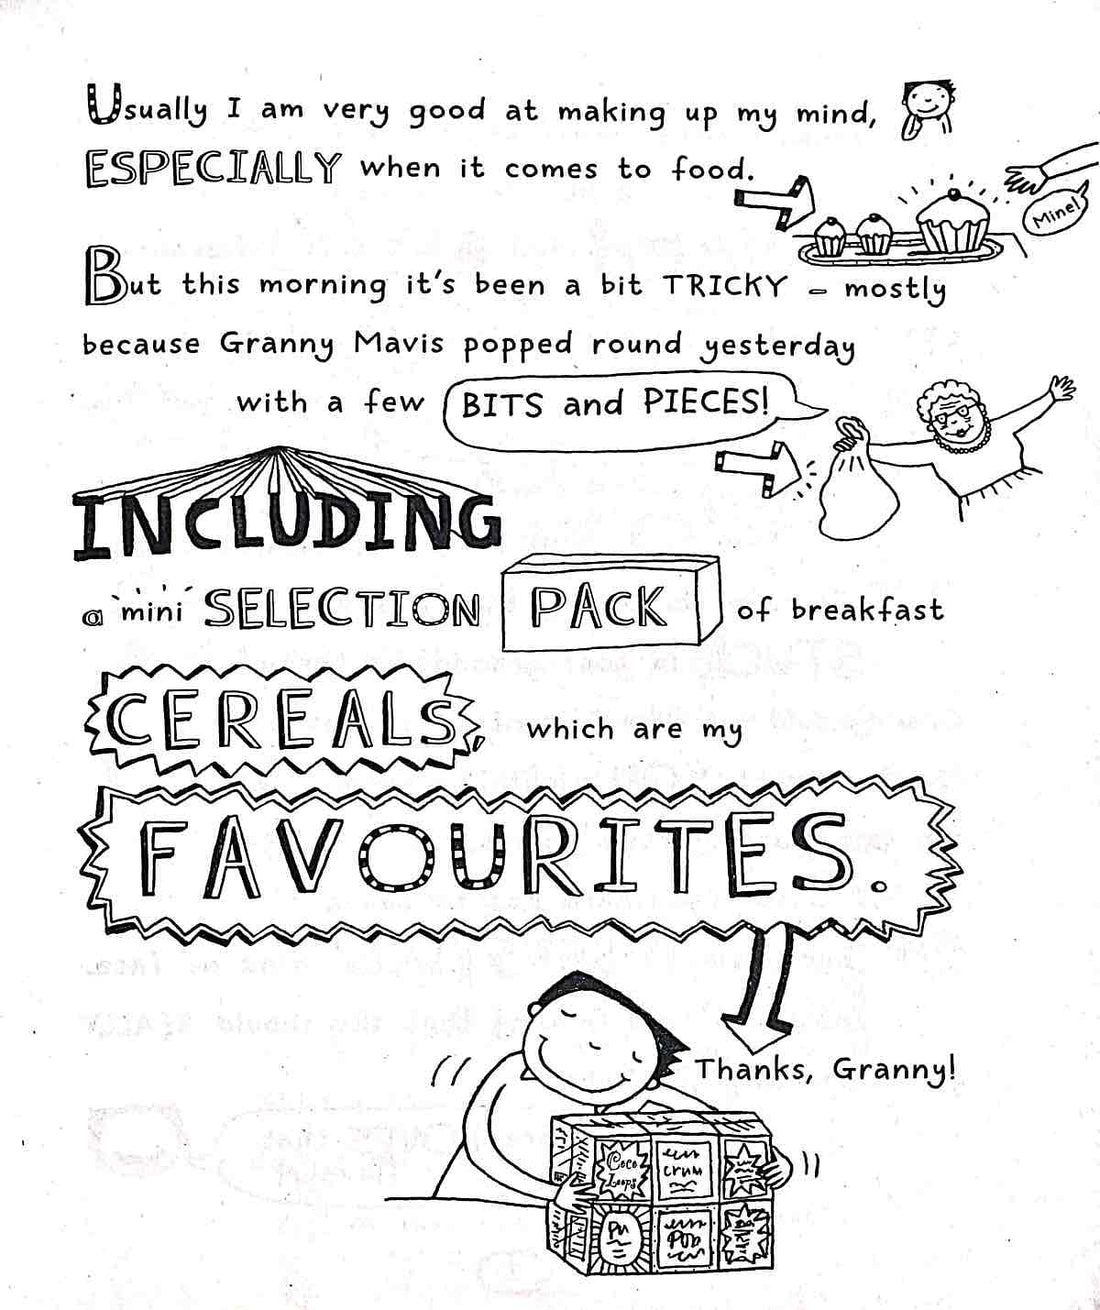 Usually I am very good at making up my mind,
ESPECIALLY when it comes to food.
Mine!
But this morning it's been a bit TRICKY – mostly
because Granny Mavis popped round yesterday
with a few BITS and PIECES!
INCLUDING
a mini SELECTION PACK of breakfast
CEREALS, which are my
FAVOURITES.
Thanks, Granny!
Coco
Loops
POP